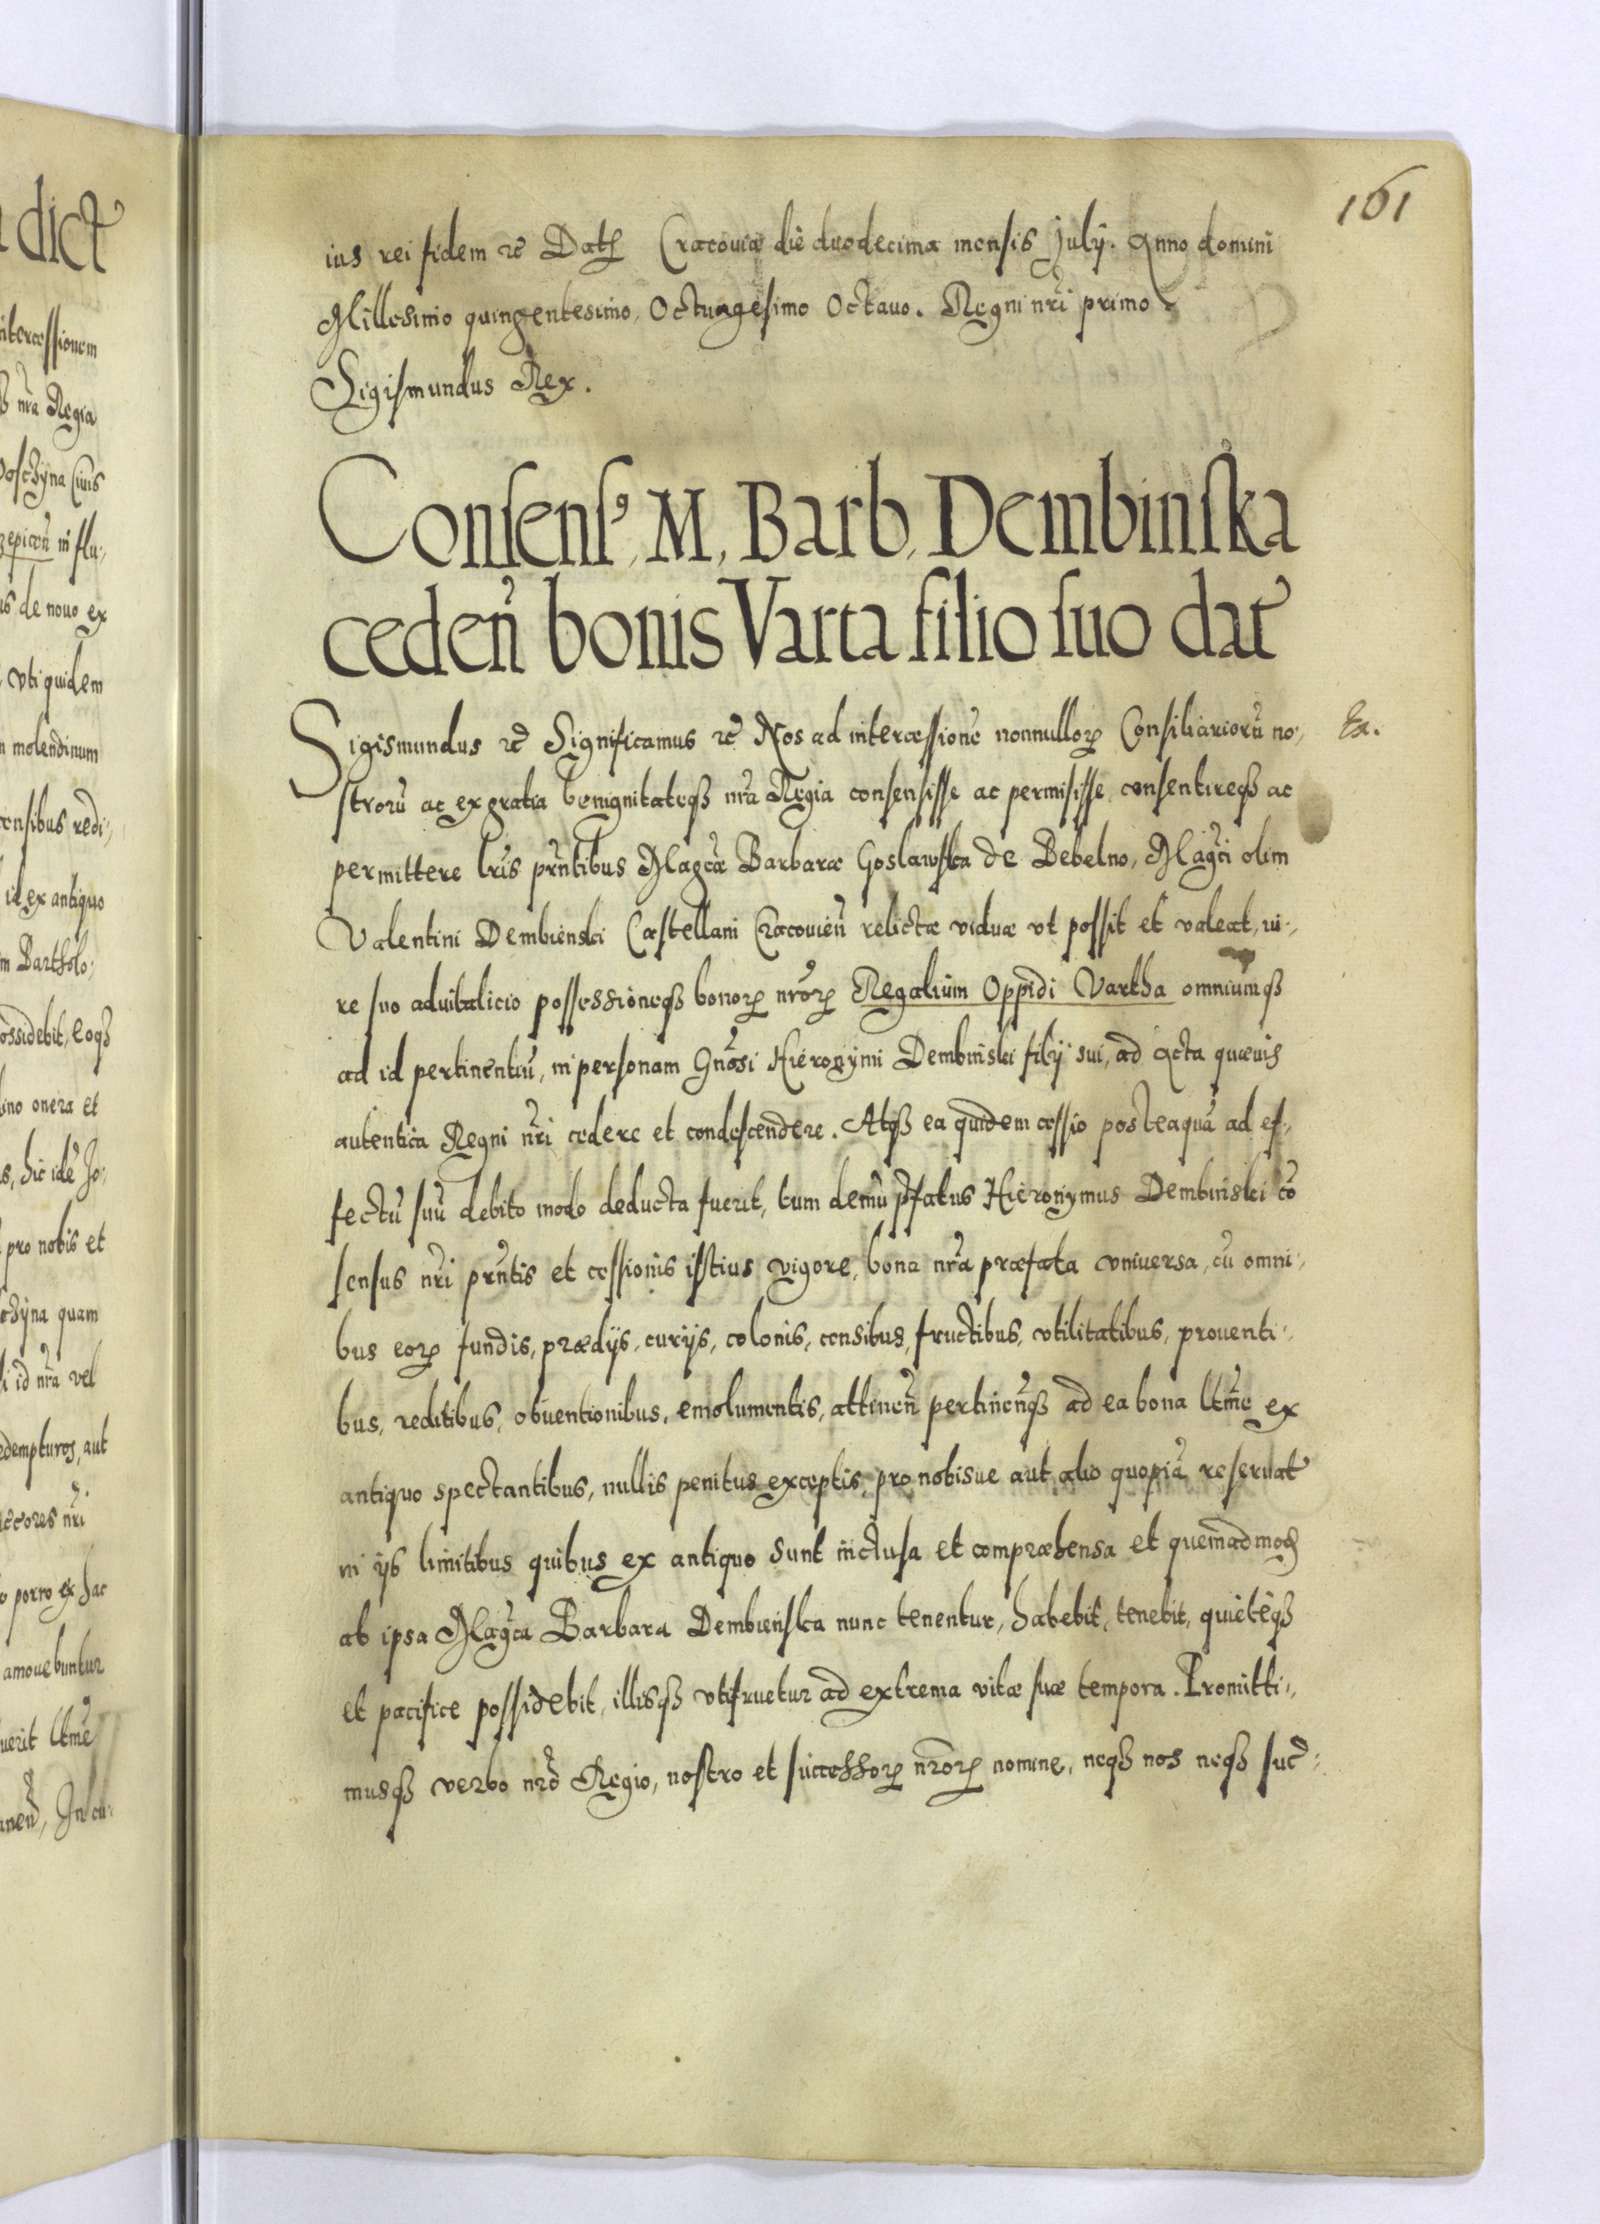 dict
161
ius rei fidem etc̃ Dat̃ Cracoviæ die duodecima mensis Julij. Anno domini
Millesimo quingentesimo, Octuagesimo Octavo. Regni nr̃i primo
Sigismundus Rex.
Consensꝰ, M, Barb, Dembinska
ceden̄ bonis Varta filio suo dat̃
Sigismundus etc̃ Significamus etc̃ Nos ad intercessionē nonnulloꝝ Consiliariorū no⸗ Ex.
strorū ac ex gratia benignitateqꝫ nr̃a Regia consensisse ac permisisse, consentireqꝫ ac
permittere lr̃is pr̃ntibus Magc̃æ Barbaræ Goslawska de Bebelno, Magc̃i olim
Valentini Dembienski Castellani Cracovien̄ relictæ viduæ vt possit et valeat, iu⸗
re suo advitalicio possessioneqꝫ bonoꝝ nr̃oꝝ Regalium Oppidi Vartha omniumqꝫ
ad id pertinentiū, in personam Gnõsi Hieronymi Dembinski filij sui, ad Acta quævis
autentica Regni nr̃i cedere et condescendere. Atqꝫ ea quidem cessio posteaquā ad ef⸗
fectū suū debito modo deducta fuerit, tum demū p̃fatus Hieronymus Dembinski cō
sensus nr̃i pr̃ntis et cessionis istius vigore, bona nr̃a præfata vniversa, cū omni⸗
bus eoꝝ fundis, prædijs, curijs, colonis, censibus, fructibus, vtilitatibus, proventi⸗
bus, reditibus, obventionibus, emolumentis, attinen̄ pertinen̄qꝫ ad ea bona ltm̃e ex
antiquo spectantibus, nullis penitus exceptis, pro nobisve aut alio quopiā reservat̃
in ijs limitibus quibus ex antiquo sunt inclusa et compræhensa et quemadmoꝺ
ab ipsa Magc̃a Barbara Dembienska nunc tenentur, habebit, tenebit, quietèqꝫ
et pacifice possidebit, illisqꝫ vtifruetur ad extrema vitæ suæ tempora. Promitti⸗
musqꝫ verbo nr̃o Regio, nostro et successoꝝ nr̃oꝝ nomine, neqꝫ nos neqꝫ succ̃⸗